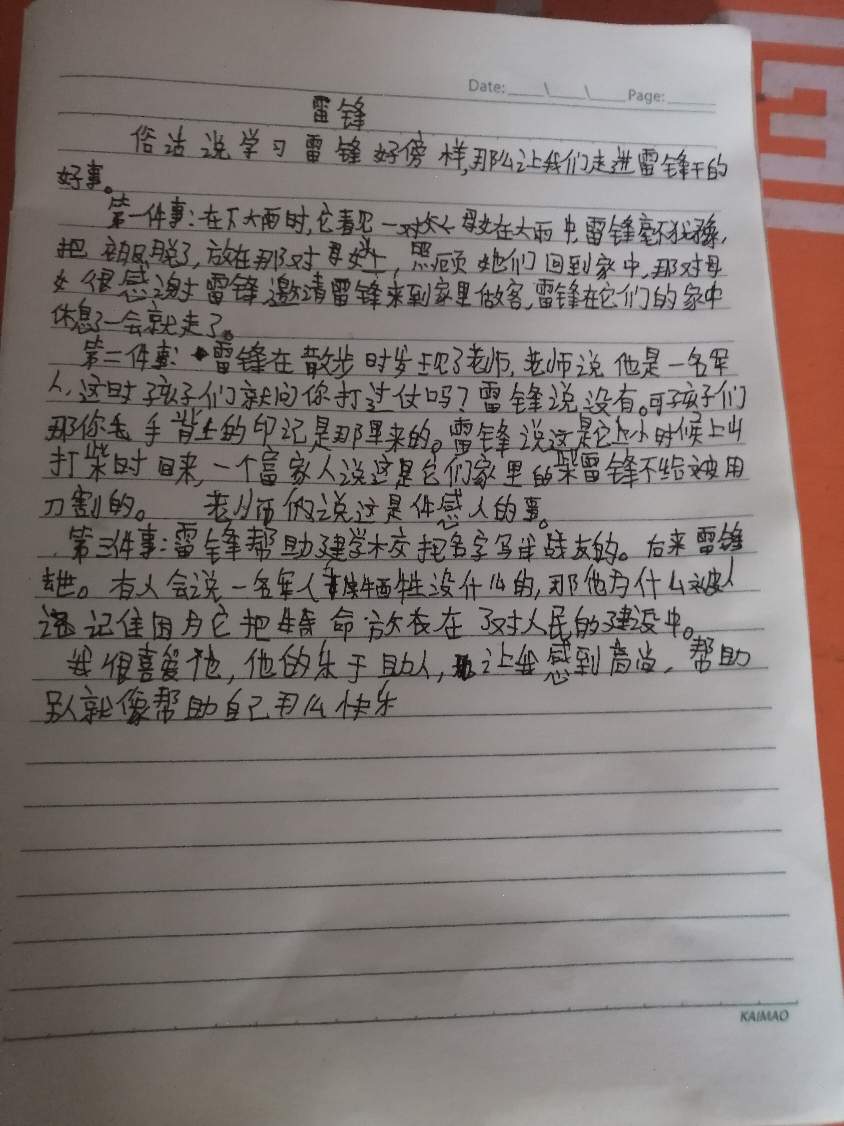 Date: \ \ Page:
雷锋
俗话说学习雷锋好傍样,那么让我们走进雷锋干的
好事。
第一件事:在下大雨时,它看见一对母女在大雨中,雷锋毫不犹豫,
把衣服脱了,放在那对母女上,照顾她们回到家中,那对母
女很感谢雷锋,邀请雷锋来到家里做客,雷锋在它们的家中
休息了一会就走了。
第二件事:雷锋在散步时发现了老师,老师说他是一名军
人,这时孩子们就问你打过仗吗?雷锋说没有。可孩子们
那你手背上的印记是那里来的。雷锋说这是它小时候上山
打柴时回来,一个富家人说这是它们家里的柴雷锋不给被用
刀割的。 老师说这是件感人的事。
第三件事:雷锋帮助建学校把名字写战友的。后来雷锋
去世。有人会说一名军人牺牲没什么的,那他为什么被人
记住因为它把生命放在了对人民的建设中。
我很喜爱他,他的乐于助人,让我感到高尚,帮助
别人就像帮助自己那么快乐
KAIMAO